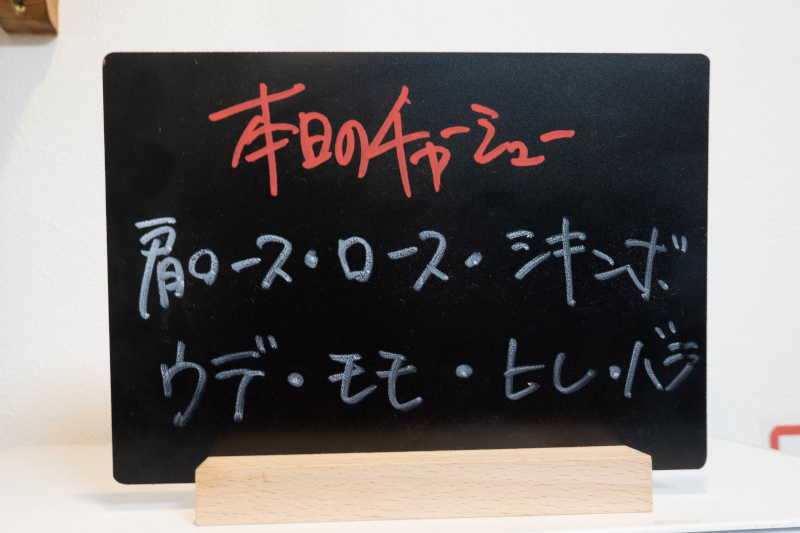 本日のチャーシュー
肩ロース・ロース・シキンボ
ウデ・モモ・ヒレ・バラ